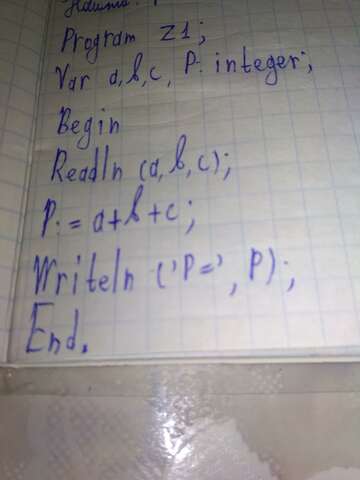 Program Z1;
Var a,b,c, P: integer;
Begin
Readln (a,b,c);
P:=a+b+c;
Writeln ('P=', P);
End.